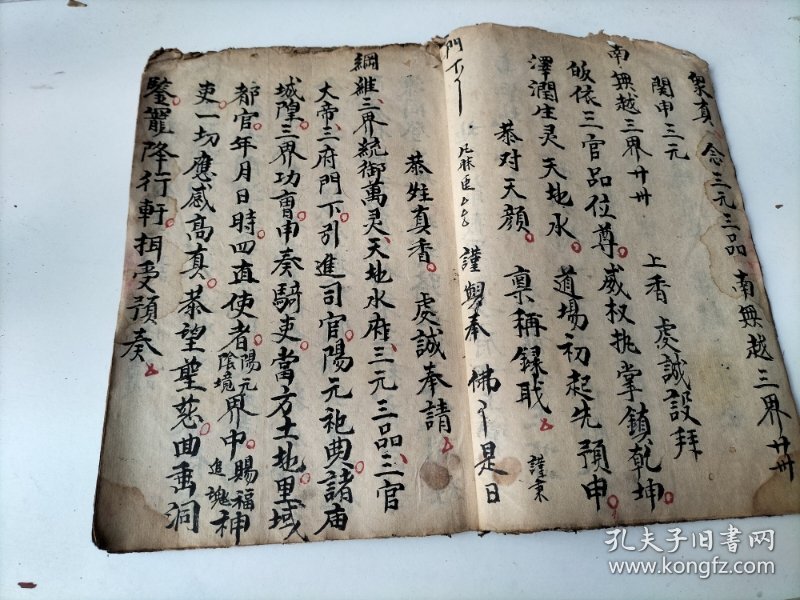 衆真 念三元三品 南無越三界廾卅
関申三元 上香 虔誠設拜
南無越三界廾卅
皈依三官品位尊威权执掌鎮乾坤
澤潤生灵天地水道場初起先預申
恭对天顔 禀称録戢 謹秉
門下
謹攀奉 佛 是日
恭炷真香 虔誠奉請
綱維三界統御萬灵天地水府三元三品三官
大帝三府門下引進司官陽元祀典諸庙
城隍三界功曹申奏騎吏當方土地里域
都官年月日時四直使者陽元陰境界中賜福追魂神
吏一切應感高真恭望聖慈曲垂洞
鑒罷降行軒拜受預奏
孔夫子旧书网
kongfz.com